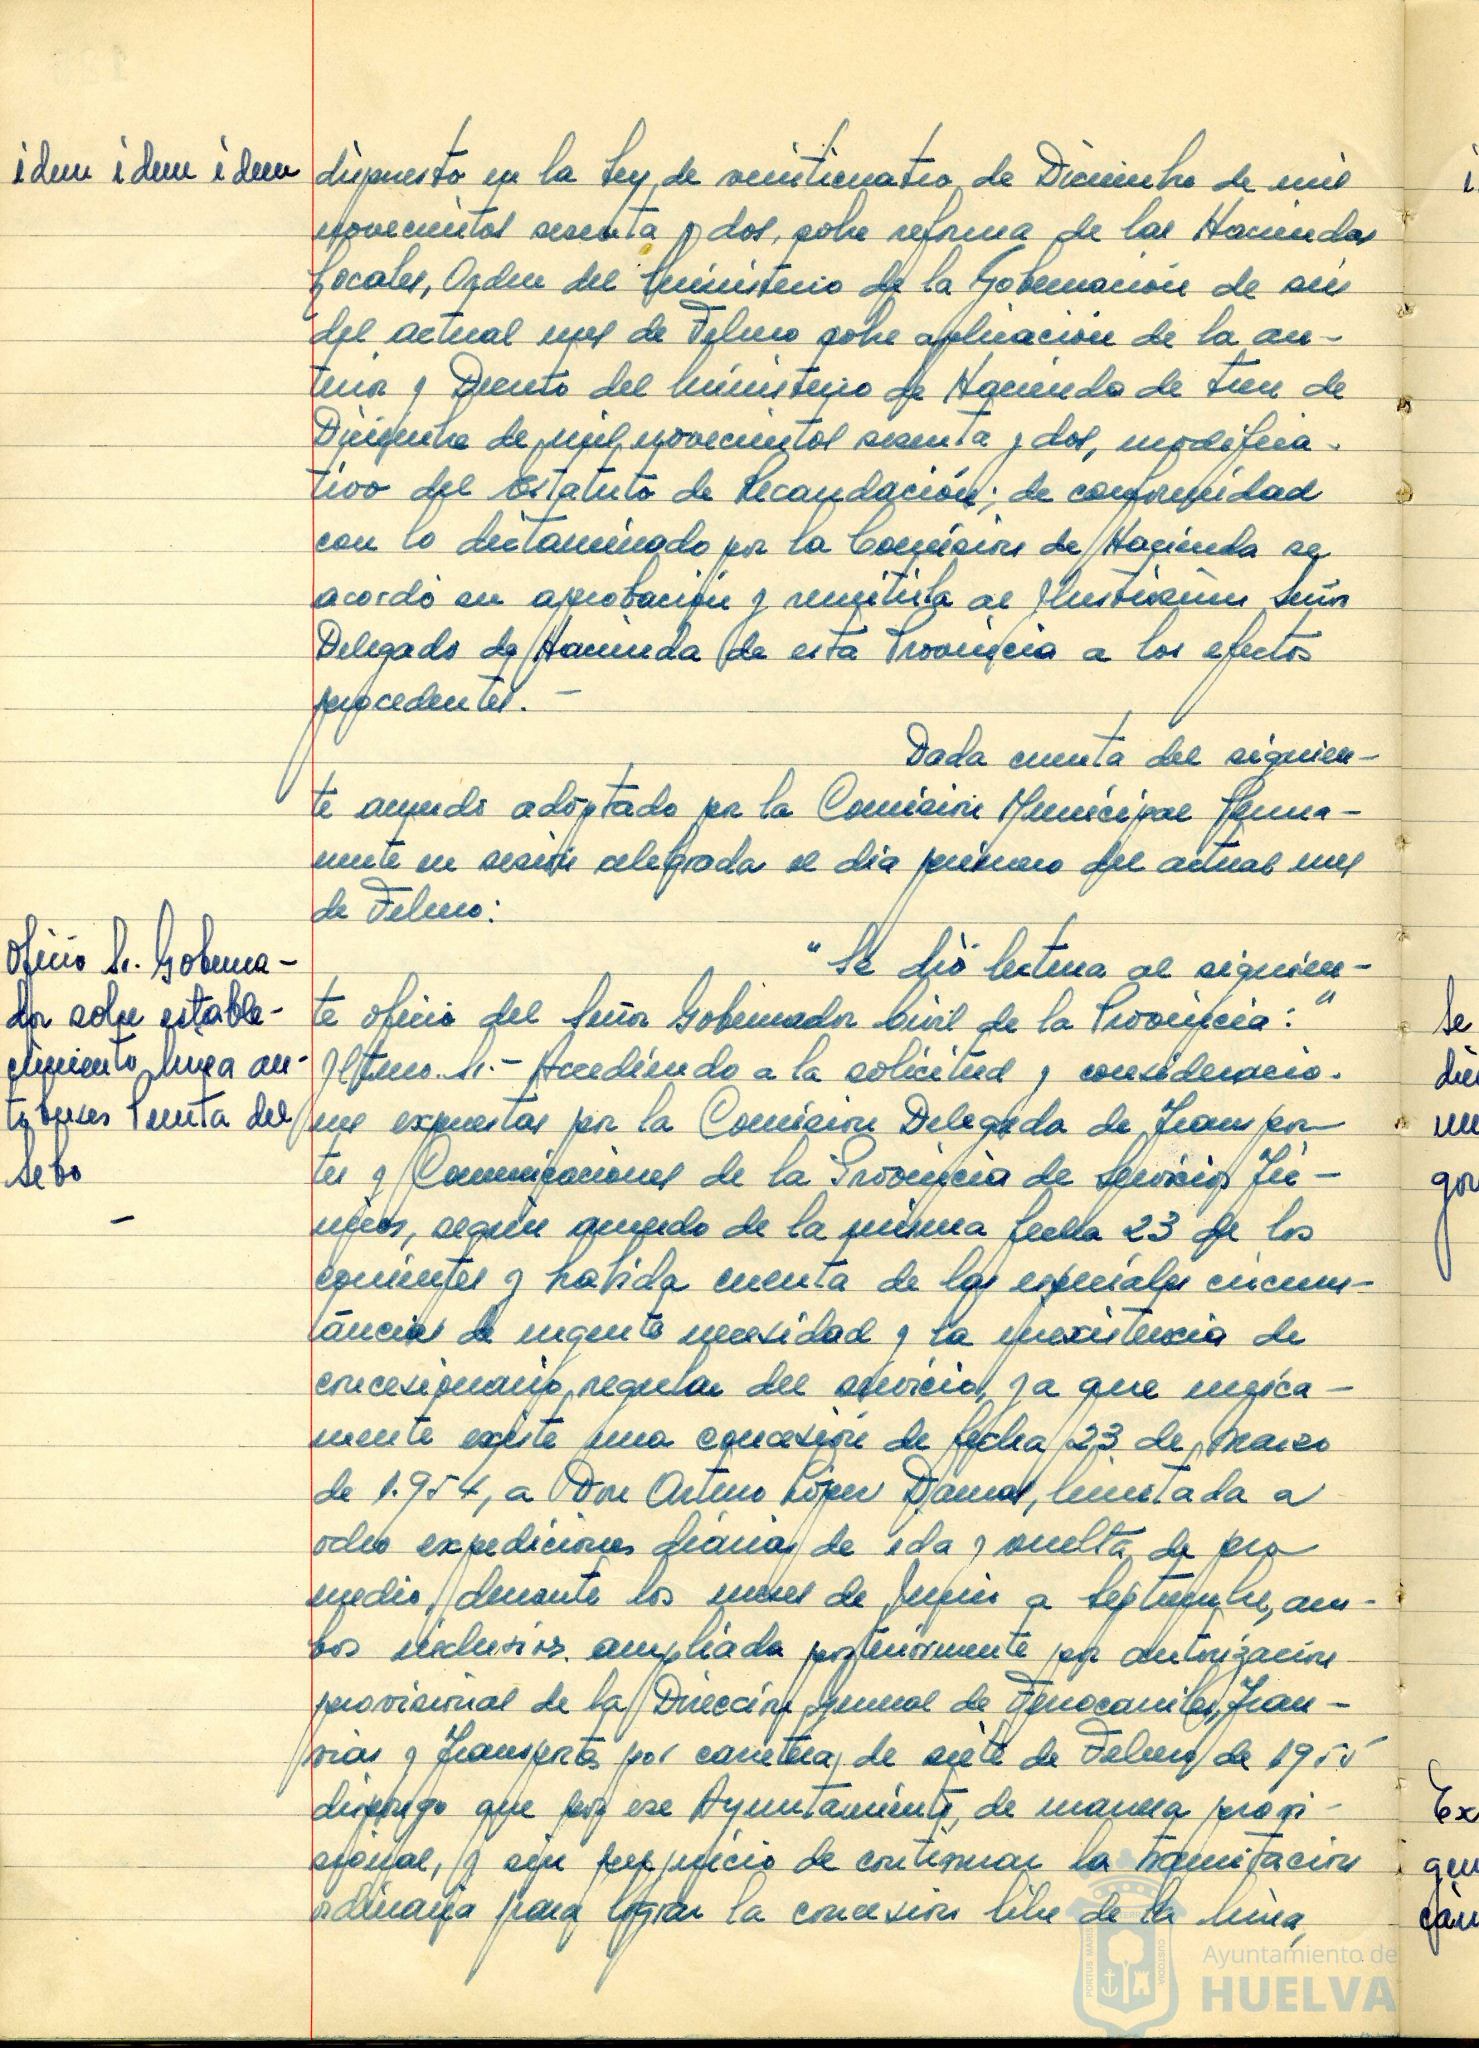 idem idem idem
dispuesto en la Ley de veinticuatro de Diciembre de mil
novecientos sesenta y dos, sobre reforma de las Haciendas
Locales, Orden del Ministerio de la Gobernación de seis
del actual mes de Febrero sobre aplicación de la an-
terior y Decreto del Ministerio de Hacienda de trece de
Diciembre de mil novecientos sesenta y dos, modifica-
tivo del Estatuto de Recaudación; de conformidad
con lo dictaminado por la Comisión de Hacienda se
acordó su aprobación y remitirla al Ilustrísimo Señor
Delegado de Hacienda de esta Provincia a los efectos
procedentes. -
Dada cuenta del siguien-
te acuerdo adoptado por la Comisión Municipal Perma-
nente en sesión celebrada el día primero del actual mes
de Febrero:
Oficio Sr. Goberna-
dor sobre estable-
cimiento línea au-
tobuses Punta del
Sebo
-
"Se dió lectura al siguien-
te oficio del Señor Gobernador Civil de la Provincia:"
Iltmo. Sr.- Accediendo a la solicitud y consideracio-
nes expuestas por la Comisión Delegada de Transpor-
tes y Comunicaciones de la Provincia de Servicios Téc-
nicos, según acuerdo de la misma fecha 23 de los
corrientes y habida cuenta de las especiales circuns-
tancias de urgente necesidad y la inexistencia de
concesionario regular del servicio, ya que única-
mente existe una concesión de fecha 23 de Marzo
de 1.954, a Don Arturo López Damas, limitada a
ocho expediciones diarias de ida y vuelta de pro
medio, durante los meses de Junio a Septiembre, am-
bos inclusives, ampliada posteriormente por autorización
provisional de la Dirección general de Ferrocarriles, Tran-
vías y Transportes por carretera, de siete de Febrero de 1955
dispongo que por ese Ayuntamiento, de manera provi-
sional, y sin perjuicio de continuar la tramitación
ordinaria para lograr la concesión libre de la línea,
i
Se
die
gor
Ex
Ayuntamiento de
HUELVA
PORTUS MARIS
CUSTODIA